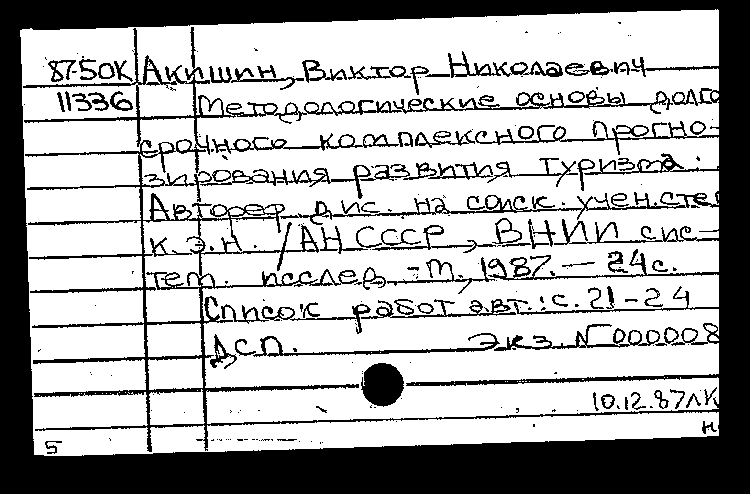 87-50К Акишин, Виктор Николаевич
11336 Методологические основы долго
срочного комплексного прогно-
зирования развития туризма:
Автореф. дис. на соиск. учен. степ
к.э.н. / АН СССР, ВНИИ сис-
тем. исслед. - М., 1987. — 24 с.
Список работ авт.: с. 21-24
ДСП. Экз. N 000008
10.12.87 ЛК
Н
5